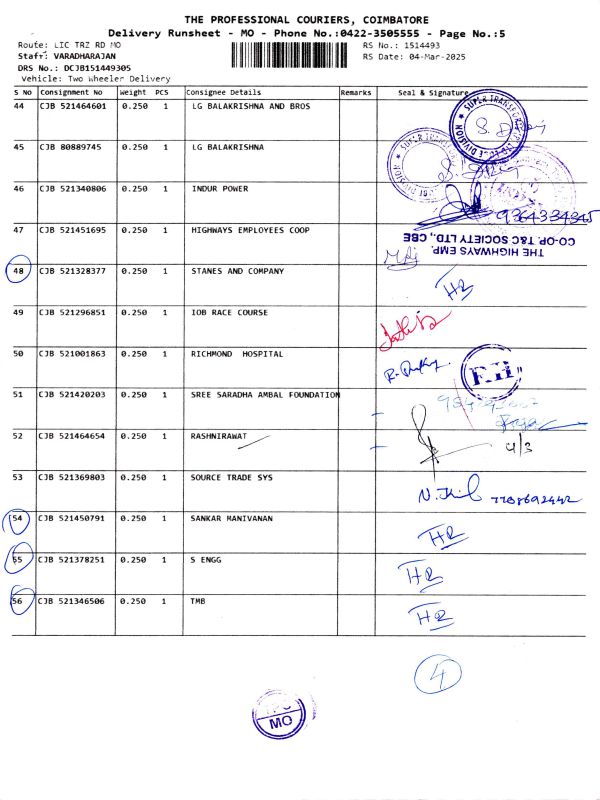 THE PROFESSIONAL COURIERS, COIMBATORE
Delivery Runsheet - MO - Phone No.:0422-3505555 - Page No.:5
Route: LIC TRZ RD MO
RS No.: 1514493
Staff: VARADHARAJAN
RS Date: 04-Mar-2025
DRS No.: DCJB151449305
Vehicle: Two Wheeler Delivery
S No Consignment No Weight PCS Consignee Details Remarks Seal & Signature
44 CJB 521464601 0.250 1 LG BALAKRISHNA AND BROS
45 CJB 80889745 0.250 1 LG BALAKRISHNA
46 CJB 521340806 0.250 1 INDUR POWER
9364334345
47 CJB 521451695 0.250 1 HIGHWAYS EMPLOYEES COOP
THE HIGHWAYS EMP.
CO-OP. T&C SOCIETY LTD., CBE
48 CJB 521328377 0.250 1 STANES AND COMPANY
49 CJB 521296851 0.250 1 IOB RACE COURSE
50 CJB 521001863 0.250 1 RICHMOND HOSPITAL
RH
51 CJB 521420203 0.250 1 SREE SARADHA AMBAL FOUNDATION
52 CJB 521464654 0.250 1 RASHNIRAWAT
4/3
53 CJB 521369803 0.250 1 SOURCE TRADE SYS
54 CJB 521450791 0.250 1 SANKAR MANIVANAN
55 CJB 521378251 0.250 1 S ENGG
56 CJB 521346506 0.250 1 TMB
4
MO